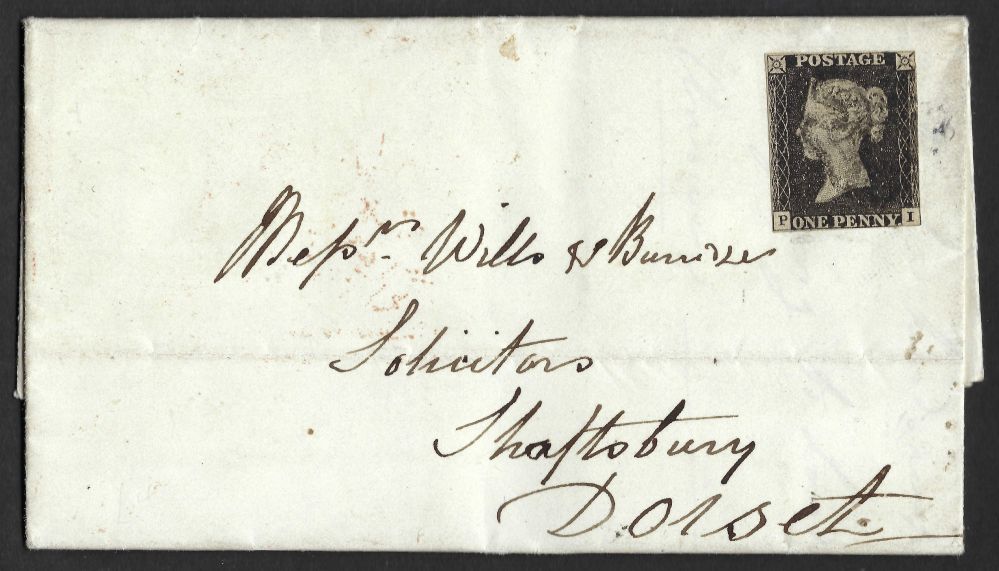 POSTAGE
P ONE PENNY. I
Messrs Wills & Burridge
Solicitors
Shaftsbury
Dorset